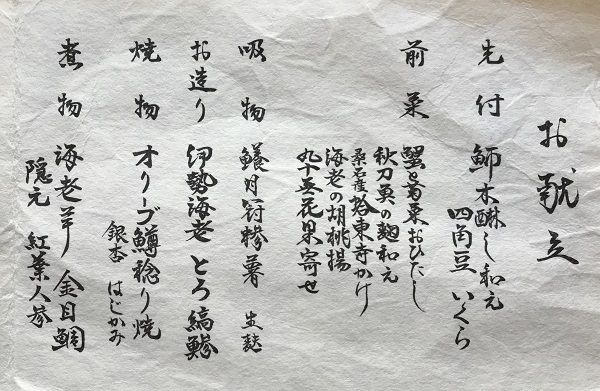 お献立
先付 魳木醂し和え
四角豆 いくら
前菜
蟹と菊菜おひたし
秋刀魚の麹和え
桑名産蛤東寺かけ
海老の胡桃揚
丸十無花果寄せ
吸物 糝薯 生麩
お造り 伊勢海老 とろ 縞鯵
焼物 オリーブ鱒稔り焼
銀杏 はじかみ
煮物 海老芋 金目鯛
隠元 紅葉人参